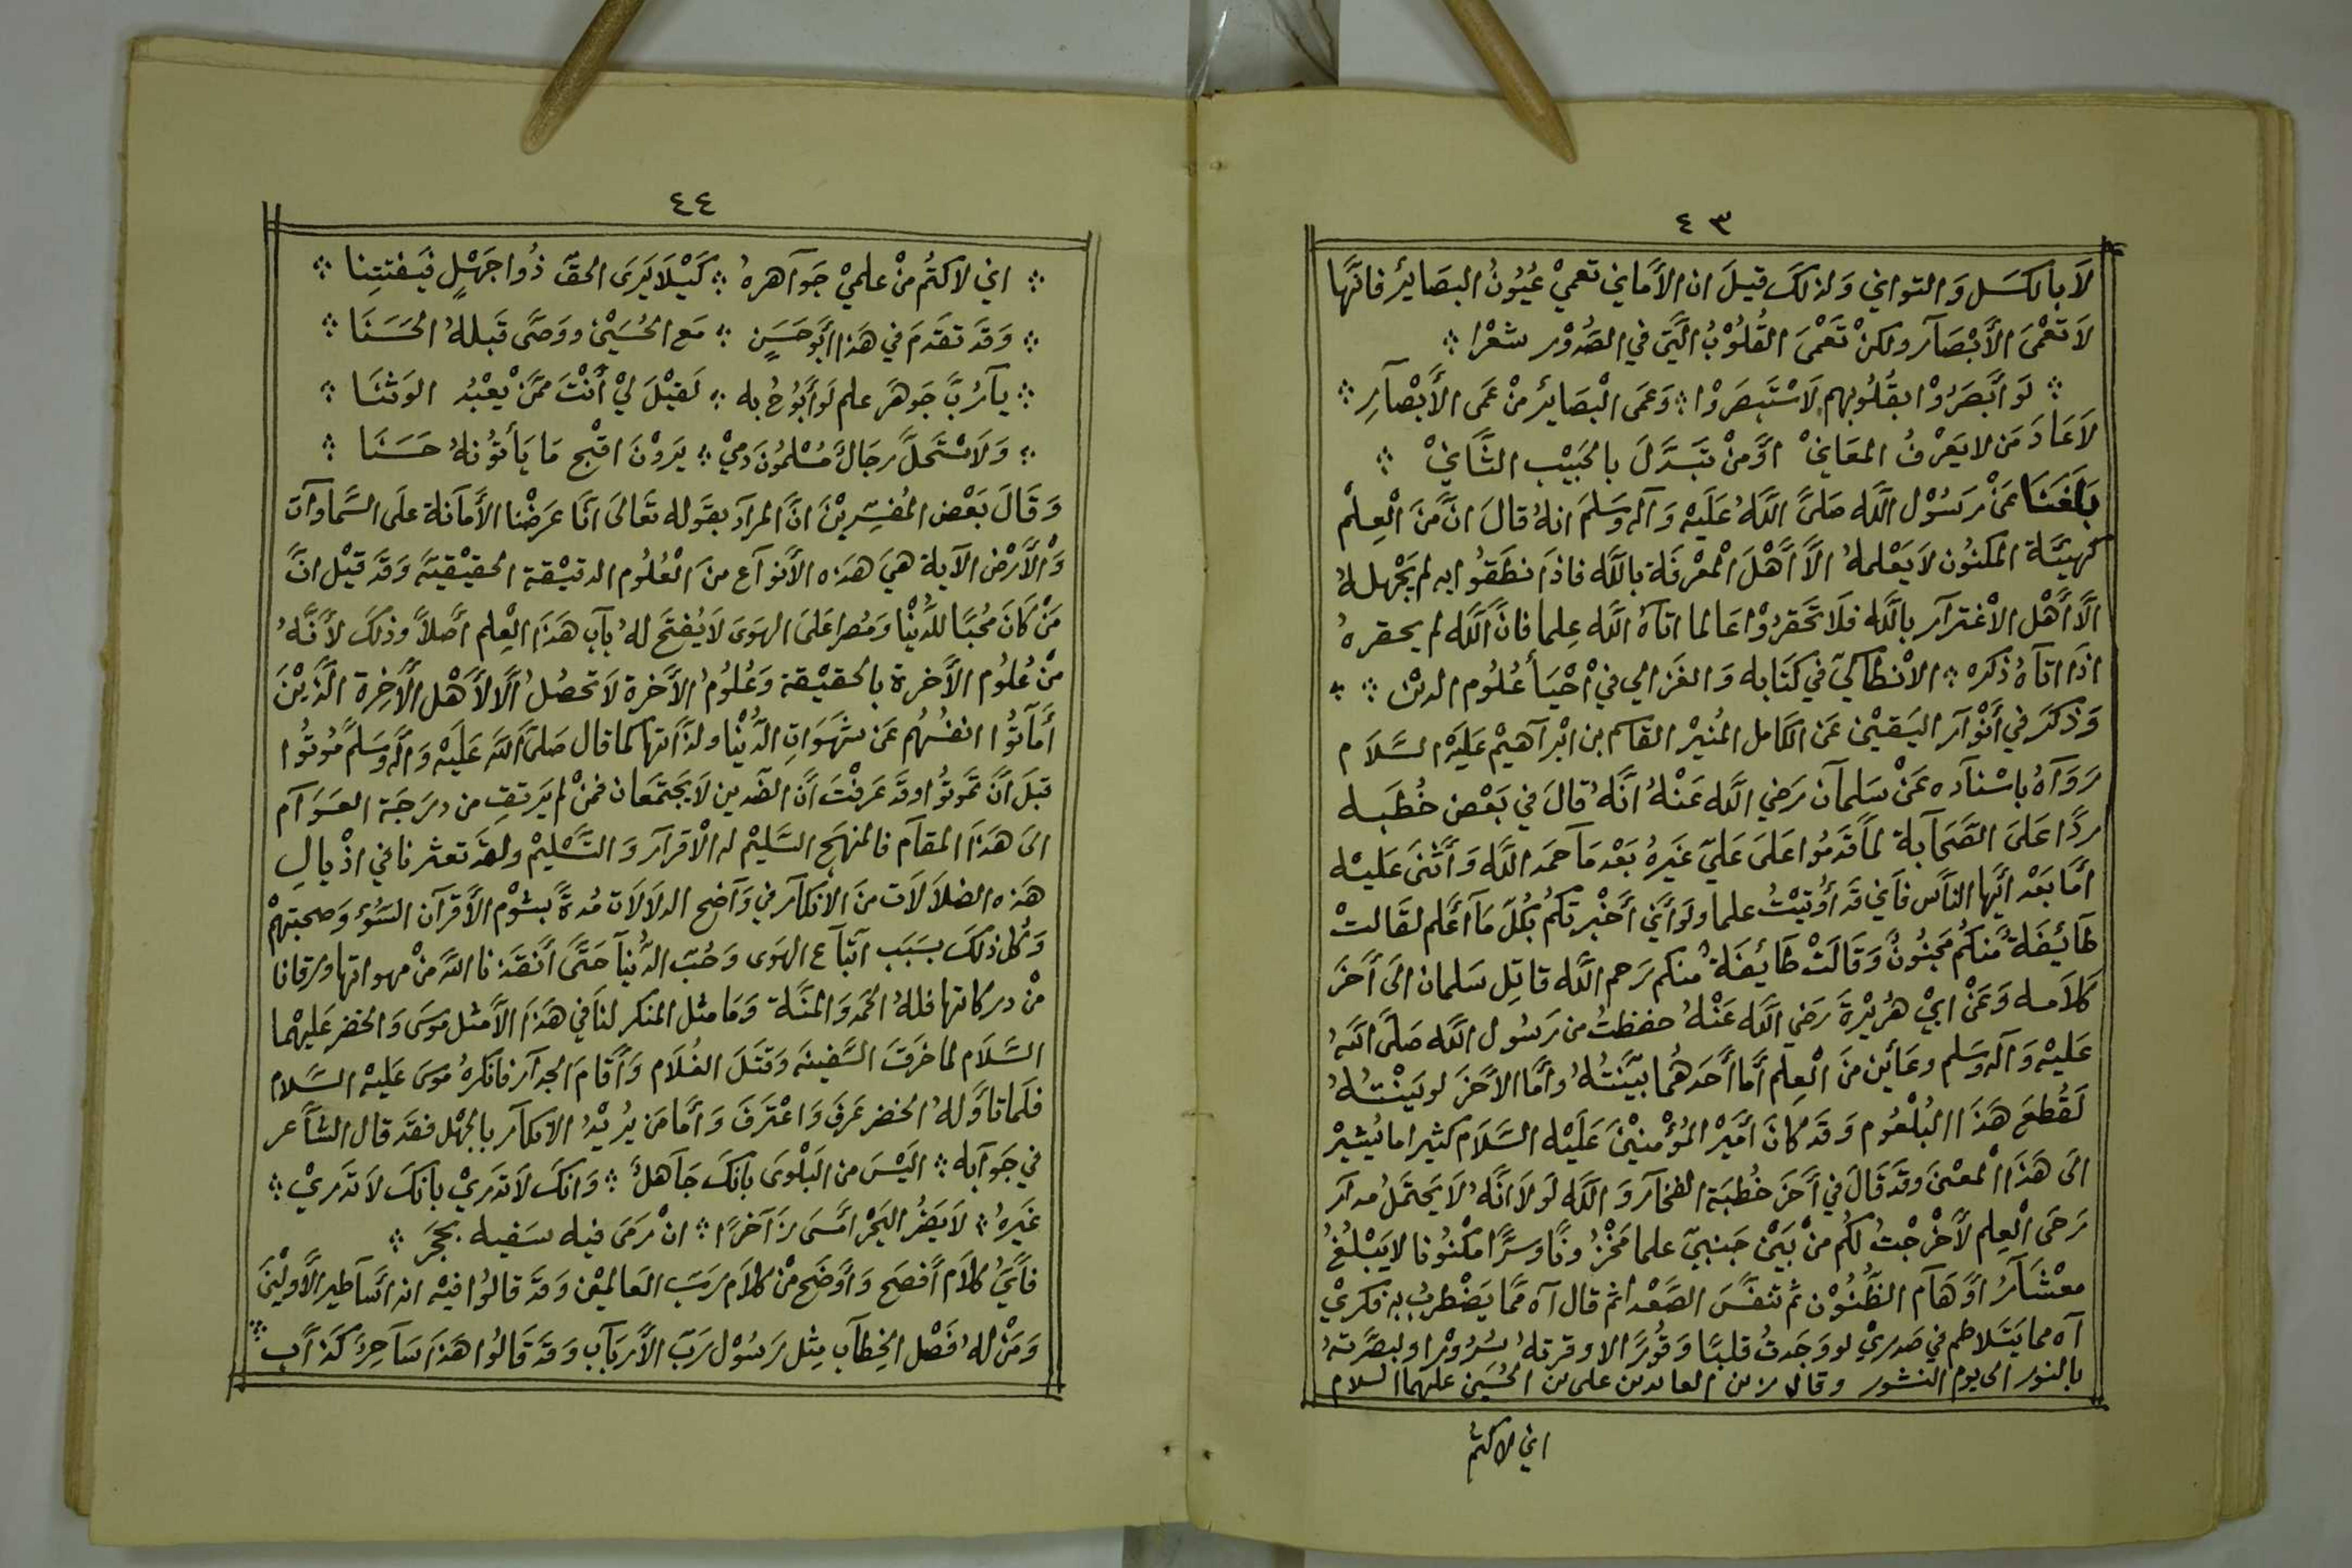 ٤٣
لَا بالكسَل وَالتواني وَلذلكَ قيلَ ان الأَماني تعميْ عُيُونُ البصَائِر فانَّها
لَا تعْمَى الأَبْصَآر ولكنْ تَعْمَى القُلُوْبُ الَّتي في الصُدُوْر شعْرا
لَو أبَصَرُوْا بقُلُوبهم لَاسْتَبصَرُوا وَعَمَى الْبصَائر منْ عَمَى الأَبْصآرِ
لَا عَادَ مَن لا يَعْرفُ المعَانيْ اوْ مَنْ تبَدَّلَ بالحَبِيْبِ الثَّانيْ
بَلَغَنَا عَنْ رَسُوْل اللَّه صَلىَّ اللَّهُ عَلَيْهِ وَآله وَسَلمَ انهُ قالَ انَّ منَ الْعِلْم
كهيئَة المكنُون لَا يَعْلمهُ الاَّ أَهْلَ الْمعْرفَة باللَّه فاذَا نطَقُوا به لم يَجْهلهُ
الاَّ أَهْل الاغْترآر باللَّه فلَا تحَقرُوْا عَالما اتاهُ اللَّه عِلما فانَّ اللَّه لم يحقرهُ
اذَا اتآهُ ذكره الانْطاكيّ في كتَابه وَالغَزالي فيْ احْيَأ عُلُوم الديْن
وَذكرَ في أَنْوآر اليَقيْن عَن الكَامل المُنيْر القاسم بن ابْرآهيْم عَليَه السَّلَام
رَوَآهُ باسْنآده عَنْ سَلمآن رَضي اللَّه عَنْهُ انَّهُ قالَ في بَعْض خُطَبه
ردًّا عَلىَ الصَّحَآبة لمَّا قدَموُا عَلىَ عَليّ غَيَرهُ بَعْد مَآ حمَد اللَّه وَأَثْنىَ عَليْه
أَمَّا بَعْد أيُّها النَّاس فأَني قَد أُوتيْتُ علما ولَو أَنيّ أَخْبرتكمُ بكُلّ مَآ أَعْلم لقَالتْ
طَآئِفَةٌ منكُم مَجنُونٌ وَقَالَتْ طَآئفَةٌ منكم رَحم اللَّه قاتِل سَلمان الىَ أَخرَ
كلَامه وَعَنْ ابيْ هُريْرةَ رَضي اللَّه عَنْهُ حفظتُ من رَسُول اللَّه صَلىَّ اللَّهُ
عَليْه وَآله وَسَلم وعَائين منَ الْعِلم أَمَّا أَحَدهُما بيَّنتُهُ وأَمَّا الأَخَرَ لو بَيَنْتُهُ
لَقُطعَ هَذَا البُلْعُوم وَقَد كانَ أَميْر المُؤْمنيْنَ عَلَيْه السَّلَام كثيرا ما يُشيْر
الىَ هَذَا الْمعْنىَ وَقَد قَالَ في أَخرَ خُطبَة الفخآر وَاللَّه لَو لَا انَّهُ لَا يَحتَملُ مدآر
رَحَى الْعِلم لأَخْرجْتُ لكُم منْ بَيْن جَنبيّ علما مخْزُونًا وسرًّا مكْنُونا لا يَبْلغُ
معْشَآرُ اوَهَآم الظُّنُوْن ثم تنفَّسَ الصَّعْدا ثم قال آه ممَّا يَضْطربُ به فكريْ
آه مما يَتَلاطم في صَدريْ لو وَجَدتُ قلبًا وَقُورًا لاوقرتهُ سُرُوْرا ولبصَّرتهُ
بالنور الى يوم النشور وقال زين العابدين على بن الحُسَين عليهما السلام
اني لاكتمُ
٤٤
اني لاكتمُ منْ علميْ جَوآهرهُ كَيْلَا يَرَى الحقّ ذُوا جَهْلٍ فَيَفتتِنا
وَقَد تقدَمَ في هَذا أَبُوحَسَنٍ مَع الحُسَيْن ووَصَّى قَبلهُ الحَسَنَا
يآرُبَّ جَوهَر علم لَو أَبُوُحُ به لَقيْلَ ليْ أَنْتَ ممَّنْ يعْبُد الوَثَنَا
وَلَاسْتَحَلَّ رجَالٌ مُسْلمُون دَميْ يَروْنَ اقْبح مَا يَأتوُنهُ حَسَنَا
وَقَالَ بَعْض المُفسّرِيْن انَّ المرآد بقَوله تَعَالىَ انَّا عَرضْنا الأَمآنة علَى السَّماوَآت
وَالْأَرْض الآية هيَ هَذه الأَنوآع منَ الْعُلُوم الدقيْقة الحقيْقيَّه وَقَد قيْل انَّ
مَنْ كَانَ مُحبًّا للدُّنْيا وَمُصرا عَلىَ الهَوَى لَا يُفتَح لهُ بآب هَذَا الْعِلم أَصْلاً وذلكَ لأَنَّهُ
منْ عُلوُم الأَخرة بالحقيْقة وَعُلُومُ الأَخرة لَا تحصُلُ الَّا لأَهْل الأَخِرة الَّذيْنَ
أَمآتوُا انفُسُهم عَن شَهوَاتِ الدُّنْيا ولذَّاتها كما قال صَلىَّ اللَّه عَلَيْه وَآله وَسَلم مُوتُوا
قبلَ أَنَ تمَوتوُا وقَد عَرفْتَ أَنَّ الضّدين لَا يَجتَمعَان فمَنْ لم يَرتقِ من درَجَة العَوَآم
الىَ هَذَا المقآم فالمنهَج السَّليْم له الْأقرآر وَالتَّسْليْم ولقد تعثرنا في اذْيالِ
هَذه الضلَالَات منَ الانكآر في وَآضح الدلَالَات مُدةً بشوْم الأَقرآن السَوْء وَصحبتهمْ
وَكُل ذلكَ بسَبَب اتبآع الهَوى وَحُبّ الدُّنيآ حَتىَّ أَنْقَذنا اللَّه منْ مهواتها ورقانا
منْ دركاتها فللهُ الحمَد وَالمنَّة وَمَا مثل المنكر لناَ في هَذَا الأَمثل مُوسَى وَالخضر عَليهْما
السَّلَام لما خرَقَ السَّفينه وَقَتَلَ الغُلَام وَأَقَامَ الجدآر فانكرهُ مُوسَى عَليهْ السَّلَام
فلَما تأَوَّلهُ الخضر عَرفَ وَاعْترَفَ وَأَمَّا مَن يُريْدُ الانكآر بالجهْل فقَد قال الشاَّعر
في جَوآبه الَيْسَ من البَلْوَى بأنكَ جَآهلٌ وَانكَ لَا تدَريْ بأنكَ لَا تَدريْ
غَيَرهُ لَا يَضُر البَحْر امَسَى زَآخرًا انْ رَمَى فيه سَفيه بحجَر
فأَيُّ كلاَم أَفصَح وَأَوضَح منْ كلاَم رَبّ العَالميْن وَقَد قالوُا فيْه انه أَسَآطير الأَولينَ
وَمَنْ لهُ فَصْل الخِطآب مِثل رَسُوْل رَبّ الأَربَآب وَقَد قَالُوا هَذَا سَآحِرٌ كَذآب